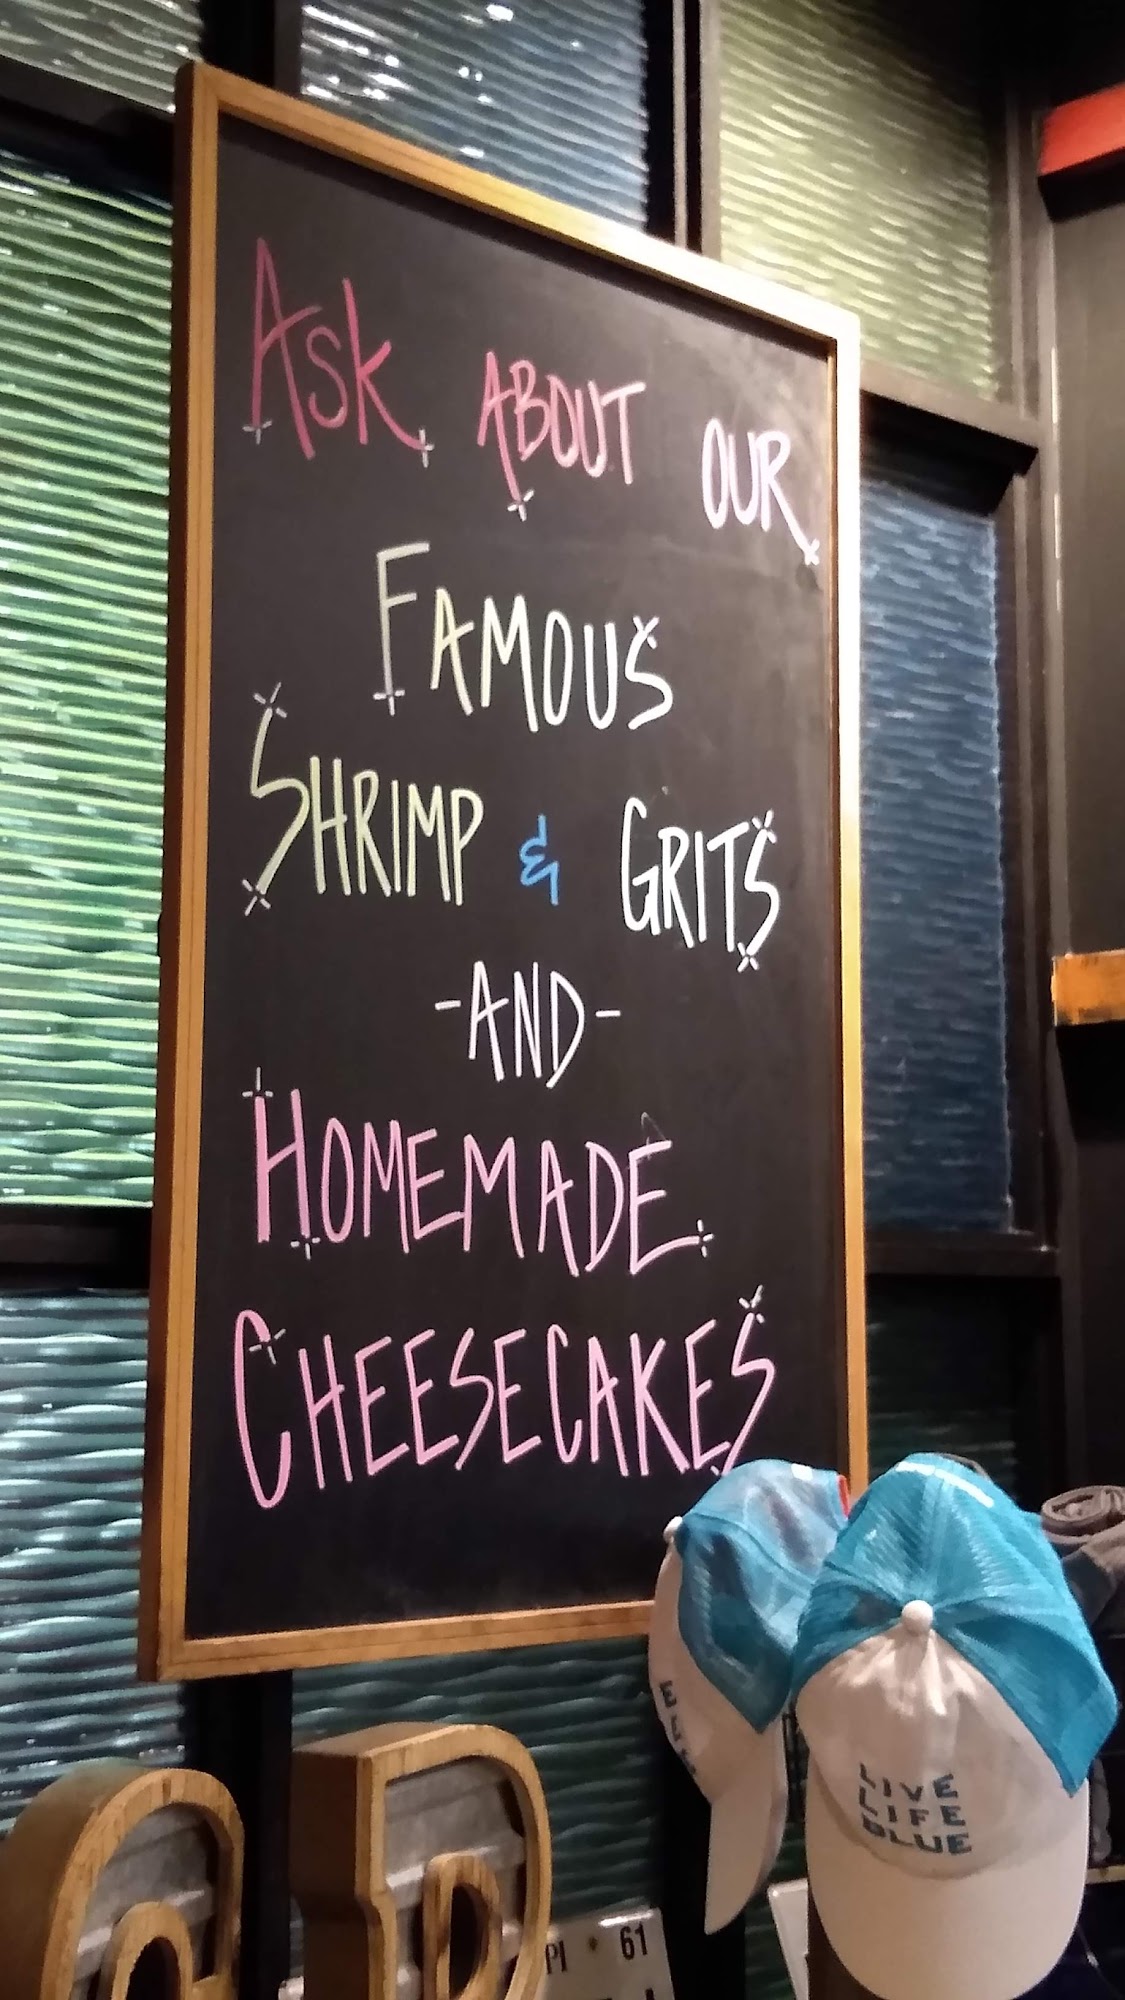 Ask ABOUT OUR
FAMOUS
SHRIMP & GRITS
-AND-
HOMEMADE
CHEESECAKES
LIVE
LIFE
BLUE
61